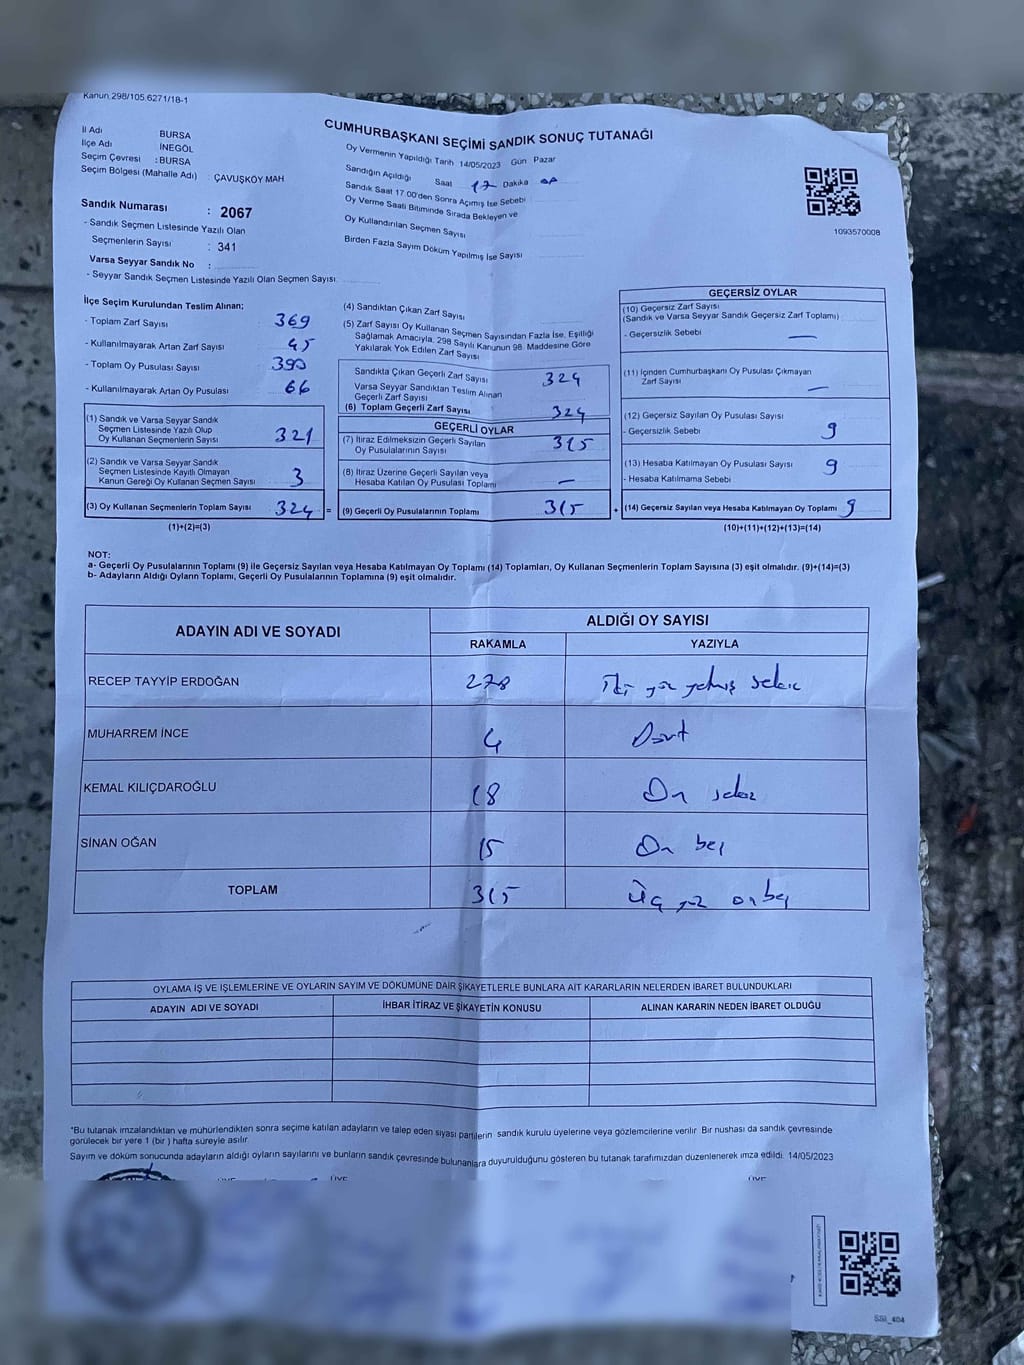 Kanun.298/105.6271/18-1
CUMHURBAŞKANI SEÇİMİ SANDIK SONUÇ TUTANAĞI
İl Adı BURSA
İlçe Adı İNEGÖL
Seçim Çevresi : BURSA
Seçim Bölgesi (Mahalle Adı) : ÇAVUŞKÖY MAH
Sandık Numarası : 2067
- Sandık Seçmen Listesinde Yazılı Olan
Seçmenlerin Sayısı : 341
Varsa Seyyar Sandık No :
- Seyyar Sandık Seçmen Listesinde Yazılı Olan Seçmen Sayısı
Oy Vermenin Yapıldığı Tarih 14/05/2023 Gün Pazar
Sandığın Açıldığı Saat 17 Dakika
Sandık Saat 17.00'den Sonra Açımış İse Sebebi
Oy Verme Saati Bitiminde Sırada Bekleyen ve
Oy Kullandırılan Seçmen Sayısı
Birden Fazla Sayım Döküm Yapılmış İse Sayısı
1093570008
İlçe Seçim Kurulundan Teslim Alınan;
- Toplam Zarf Sayısı 369
- Kullanılmayarak Artan Zarf Sayısı 45
- Toplam Oy Pusulası Sayısı 390
- Kullanılmayarak Artan Oy Pusulası 66
(1) Sandık ve Varsa Seyyar Sandık
Seçmen Listesinde Yazılı Olup
Oy Kullanan Seçmenlerin Sayısı 321
(2) Sandık ve Varsa Seyyar Sandık
Seçmen Listesinde Kayıtlı Olmayan
Kanun Gereği Oy Kullanan Seçmen Sayısı 3
(3) Oy Kullanan Seçmenlerin Toplam Sayısı 324 =
(1)+(2)=(3)
(4) Sandıktan Çıkan Zarf Sayısı
(5) Zarf Sayısı Oy Kullanan Seçmen Sayısından Fazla İse, Eşitliği
Sağlamak Amacıyla, 298 Sayılı Kanunun 98. Maddesine Göre
Yakılarak Yok Edilen Zarf Sayısı
Sandıkta Çıkan Geçerli Zarf Sayısı 324
Varsa Seyyar Sandıktan Teslim Alınan
Geçerli Zarf Sayısı
(6) Toplam Geçerli Zarf Sayısı 324
GEÇERLİ OYLAR
(7) İtiraz Edilmeksizin Geçerli Sayılan
Oy Pusulalarının Sayısı 315
(8) İtiraz Üzerine Geçerli Sayılan veya
Hesaba Katılan Oy Pusulası Toplamı —
(9) Geçerli Oy Pusulalarının Toplamı 315 +
GEÇERSİZ OYLAR
(10) Geçersiz Zarf Sayısı
(Sandık ve Varsa Seyyar Sandık Geçersiz Zarf Toplamı)
- Geçersizlik Sebebi —
(11) İçinden Cumhurbaşkanı Oy Pusulası Çıkmayan
Zarf Sayısı —
(12) Geçersiz Sayılan Oy Pusulası Sayısı
- Geçersizlik Sebebi 9
(13) Hesaba Katılmayan Oy Pusulası Sayısı 9
- Hesaba Katılmama Sebebi
(14) Geçersiz Sayılan veya Hesaba Katılmayan Oy Toplamı 9
(10)+(11)+(12)+(13)=(14)
NOT:
a- Geçerli Oy Pusulalarının Toplamı (9) ile Geçersiz Sayılan veya Hesaba Katılmayan Oy Toplamı (14) Toplamları, Oy Kullanan Seçmenlerin Toplam Sayısına (3) eşit olmalıdır. (9)+(14)=(3)
b- Adayların Aldığı Oyların Toplamı, Geçerli Oy Pusulalarının Toplamına (9) eşit olmalıdır.
ADAYIN ADI VE SOYADI ALDIĞI OY SAYISI
RAKAMLA YAZIYLA
RECEP TAYYİP ERDOĞAN 278 İki yüz yetmiş sekiz
MUHARREM İNCE 4 Dört
KEMAL KILIÇDAROĞLU 18 On sekiz
SİNAN OĞAN 15 On beş
TOPLAM 315 Üç yüz on beş
OYLAMA İŞ VE İŞLEMLERİNE VE OYLARIN SAYIM VE DÖKÜMÜNE DAİR ŞİKAYETLERLE BUNLARA AİT KARARLARIN NELERDEN İBARET BULUNDUKLARI
ADAYIN ADI VE SOYADI İHBAR İTİRAZ VE ŞİKAYETİN KONUSU ALINAN KARARIN NEDEN İBARET OLDUĞU
*Bu tutanak imzalandıktan ve mühürlendikten sonra seçime katılan adayların ve talep eden siyasi partilerin sandık kurulu üyelerine veya gözlemcilerine verilir. Bir nüshası da sandık çevresinde
görülecek bir yere 1 (bir ) hafta süreyle asılır.
Sayım ve döküm sonucunda adayların aldığı oyların sayılarını ve bunların sandık çevresinde bulunanlara duyurulduğunu gösteren bu tutanak tarafımızdan düzenlenerek imza edildi. 14/05/2023
ÜYE ÜYE ÜYE
SSI_404